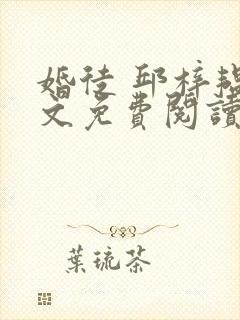 婚徒 邱梓韞
文免費閱讀
葉琉茶